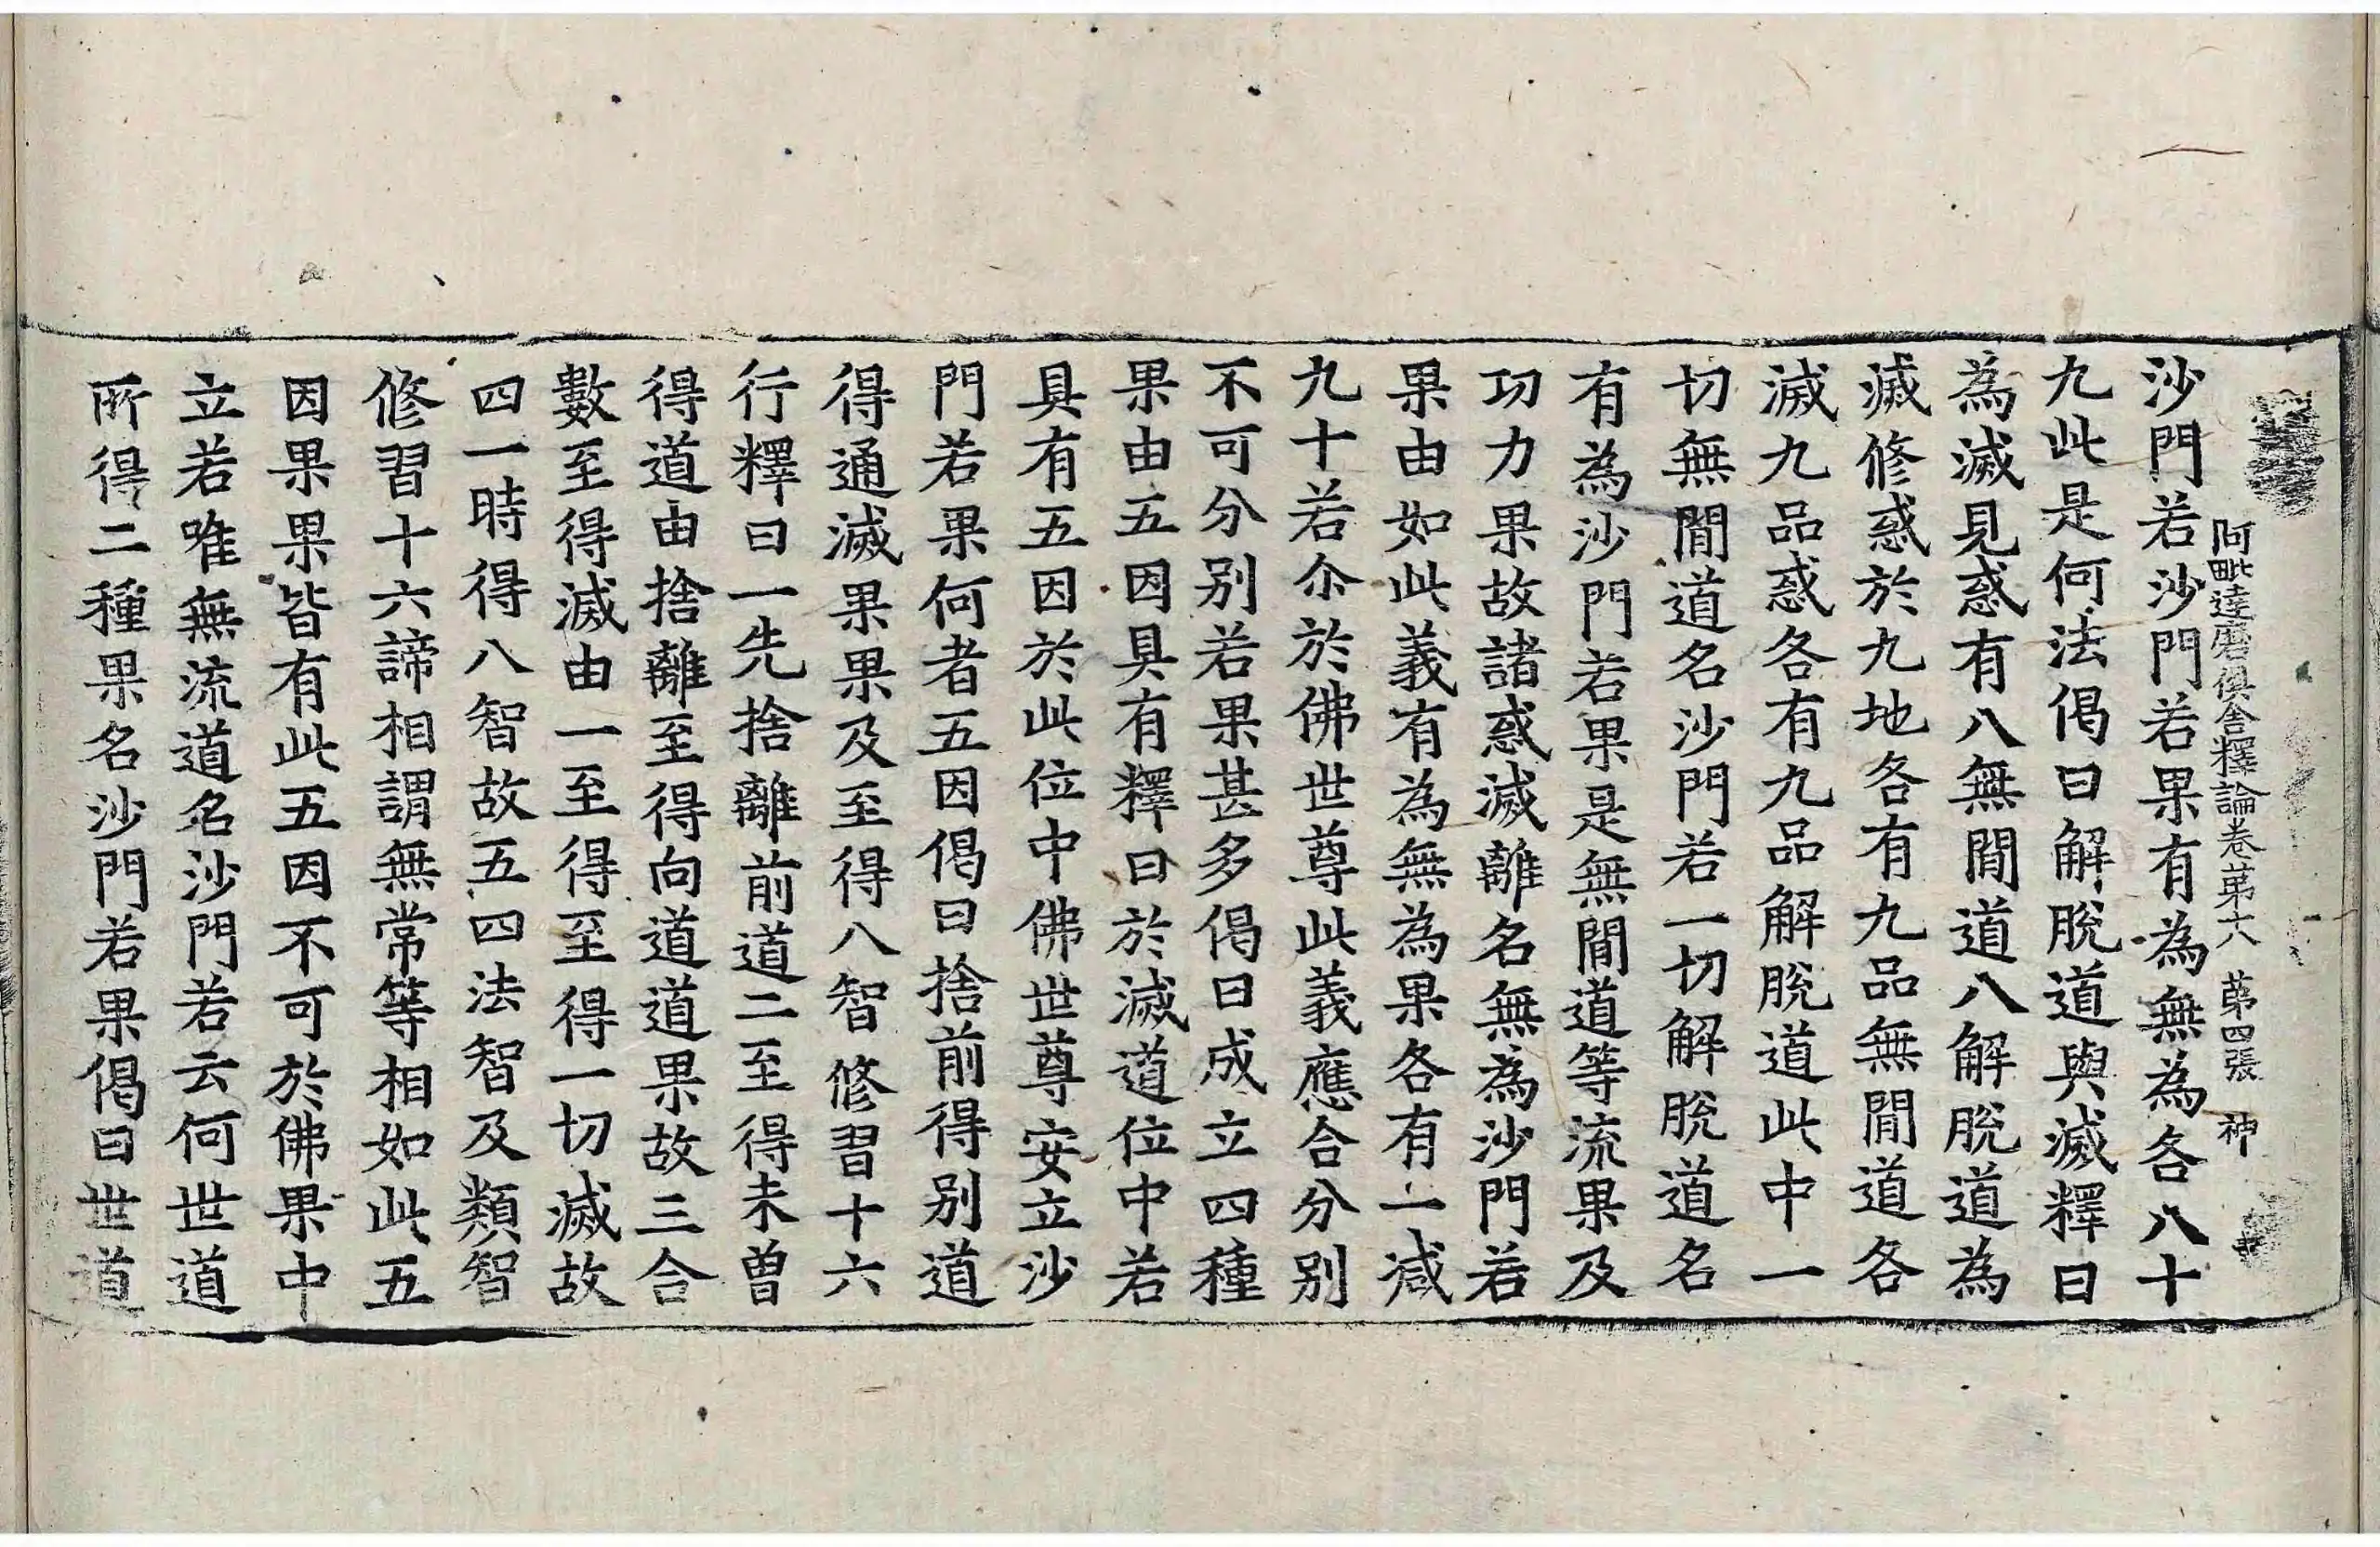 阿毗達磨俱舍釋論卷第十八　第四張　神
沙門若沙門若果有為無為各八十
九此是何法偈曰解脫道與滅釋曰
為滅見惑有八無間道八解脫道為
滅修惑於九地各有九品無間道各
滅九品惑各有九品解脫道此中一
切無間道名沙門若一切解脫道名
有為沙門若果是無間道等流果及
功力果故諸惑滅離名無為沙門若
果由如此義有為無為果各有一減
九十若尒於佛世尊此義應合分別
不可分別若果甚多偈曰成立四種
果由五因具有釋曰於滅道位中若
具有五因於此位中佛世尊安立沙
門若果何者五因偈曰捨前得別道
得通滅果果及至得八智修習十六
行釋曰一先捨離前道二至得未曾
得道由捨離至得向道道果故三合
數至得滅由一至得至得一切滅故
四一時得八智故五四法智及類智
修習十六諦相謂無常等相如此五
因果果皆有此五因不可於佛果中
立若唯無流道名沙門若云何世道
所得二種果名沙門若果偈曰世道